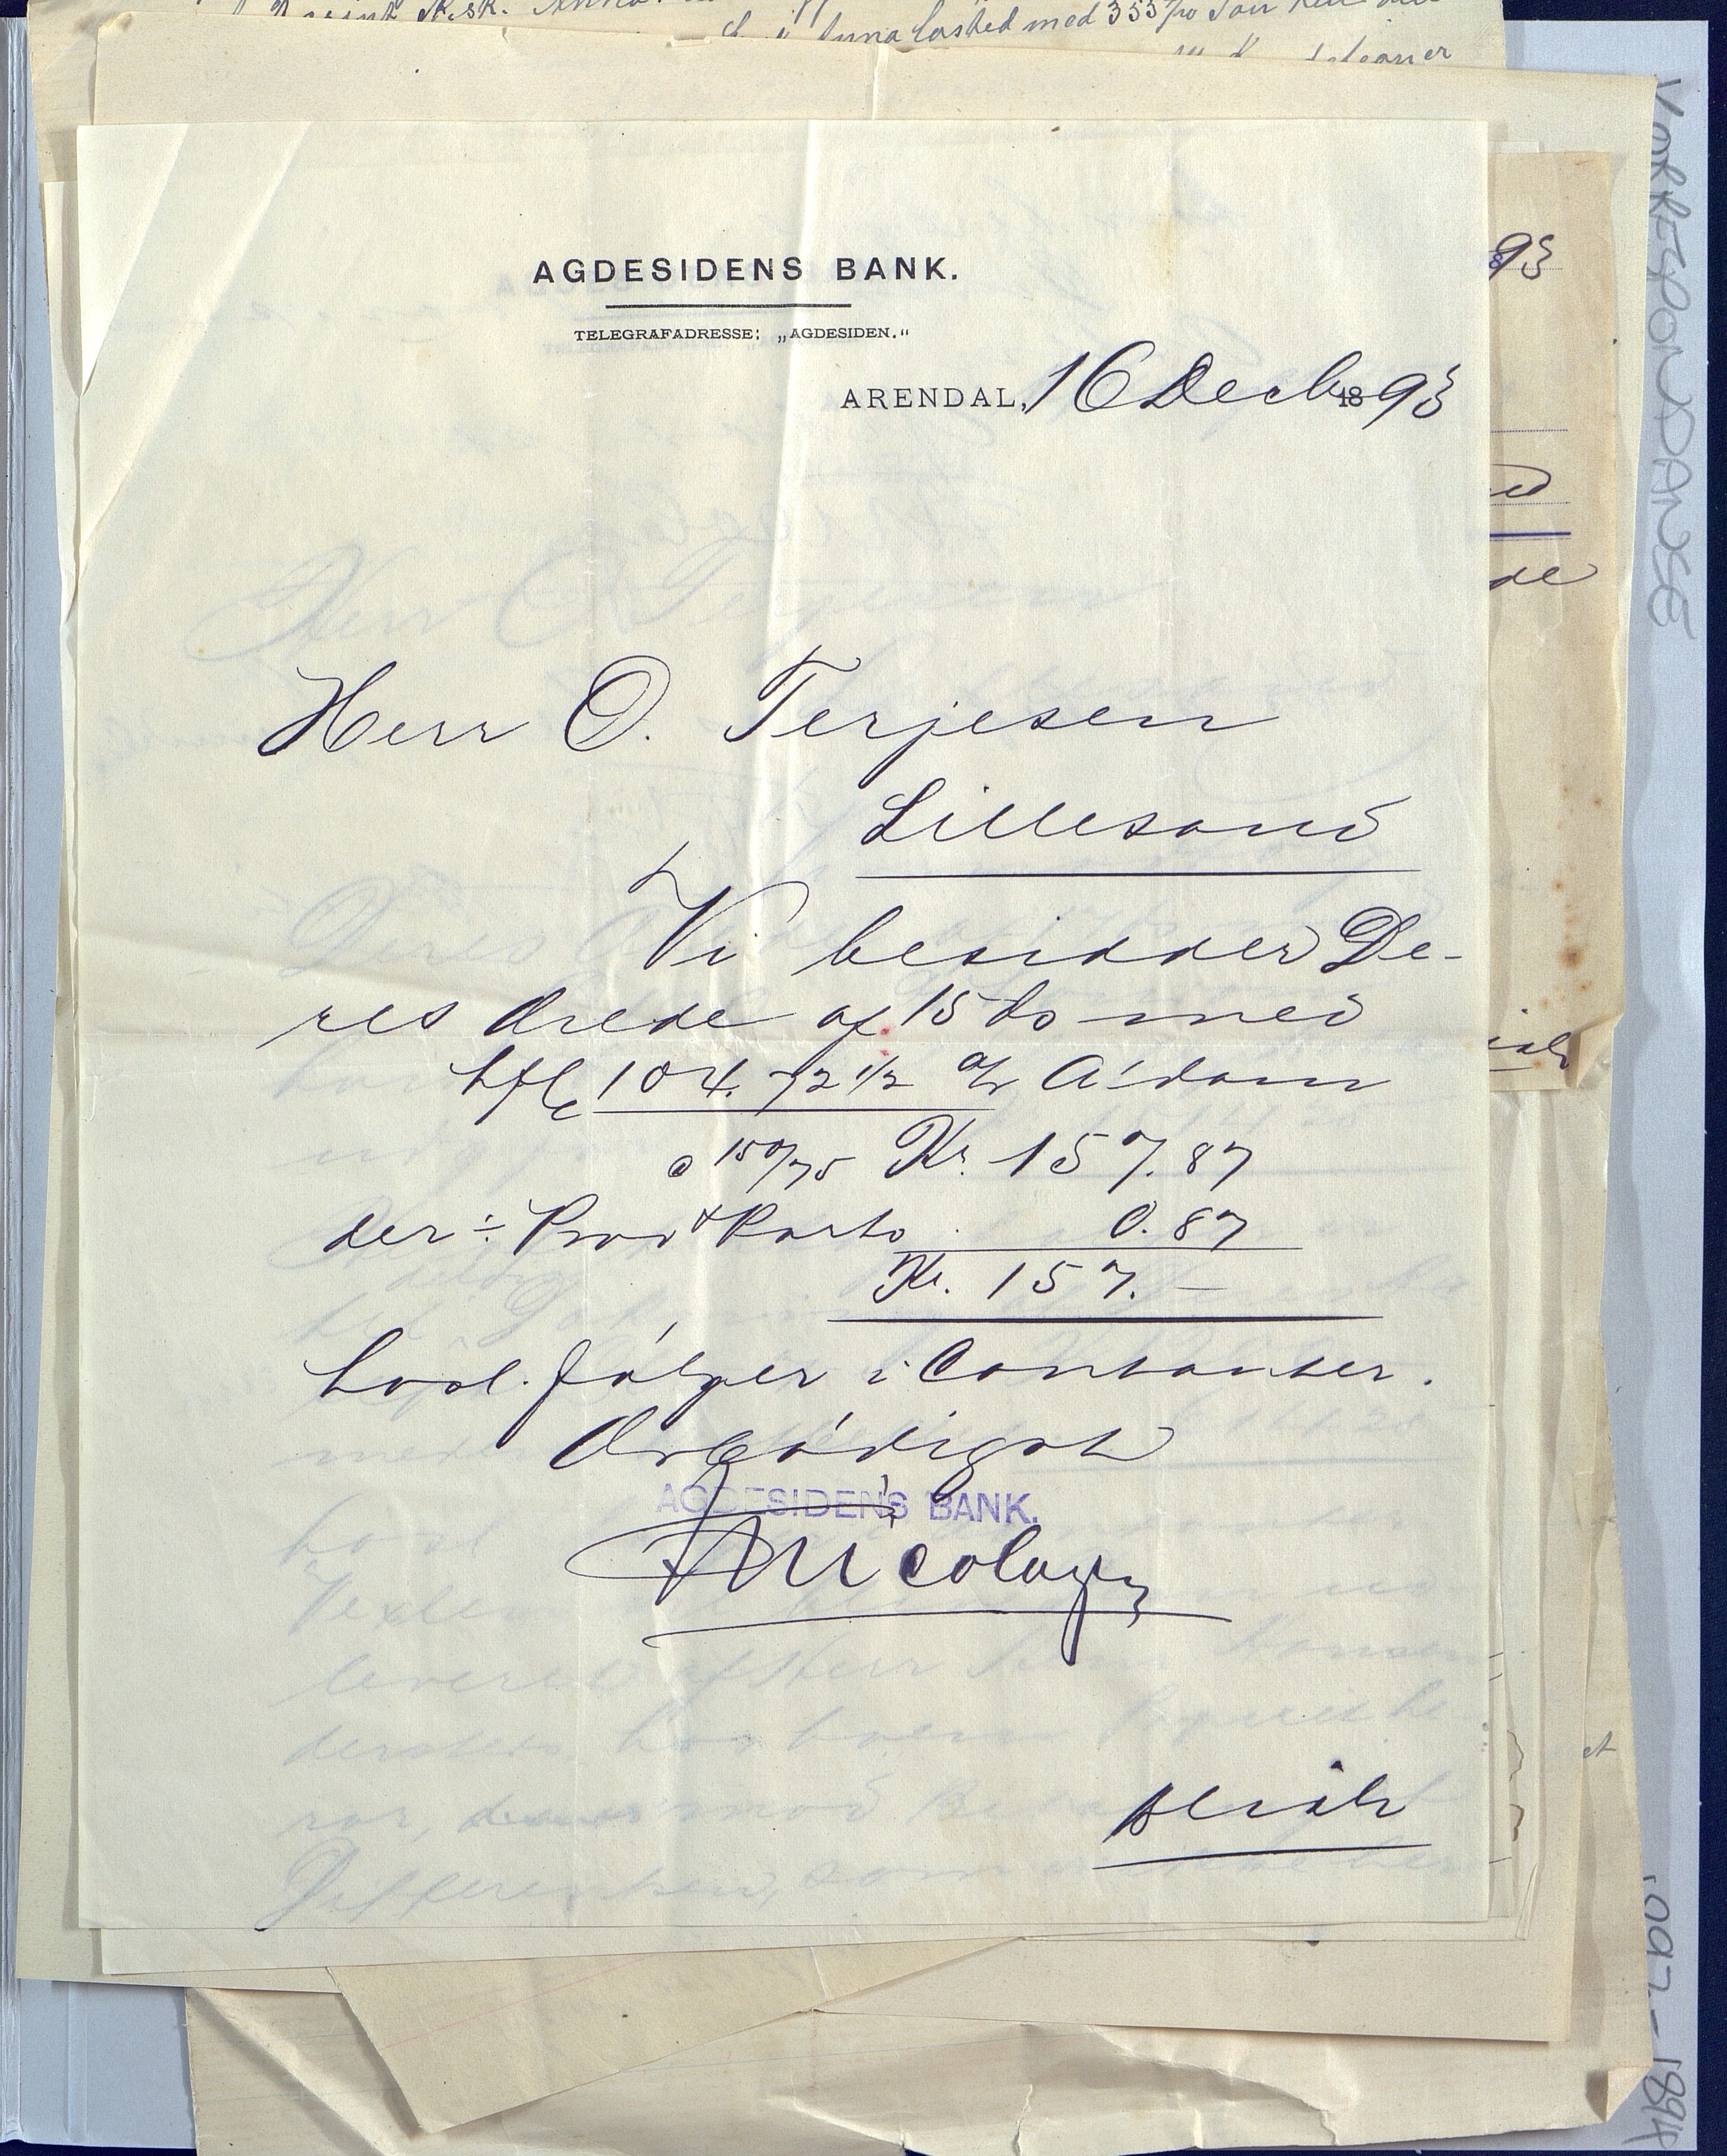 lasted med 353
AGDESIDENS BANK.
TELEGRAFADRESSE: „AGDESIDEN."
ARENDAL, 16 Decb 1893
93
Herr O. Terjesen
Lillesand
Vi besidder De-
res Ærede af 15 ds med
hfl 104.72 1/2 a/ A'dam
a 150/75 Kr. 157.87
der ÷ Prov & Porto 0.87
Kr. 157.–
hvol. følger i Contanter.
Ærbødigst
AGDESIDENS BANK.
Nicolaysen
KORRESPONDANSE
1894